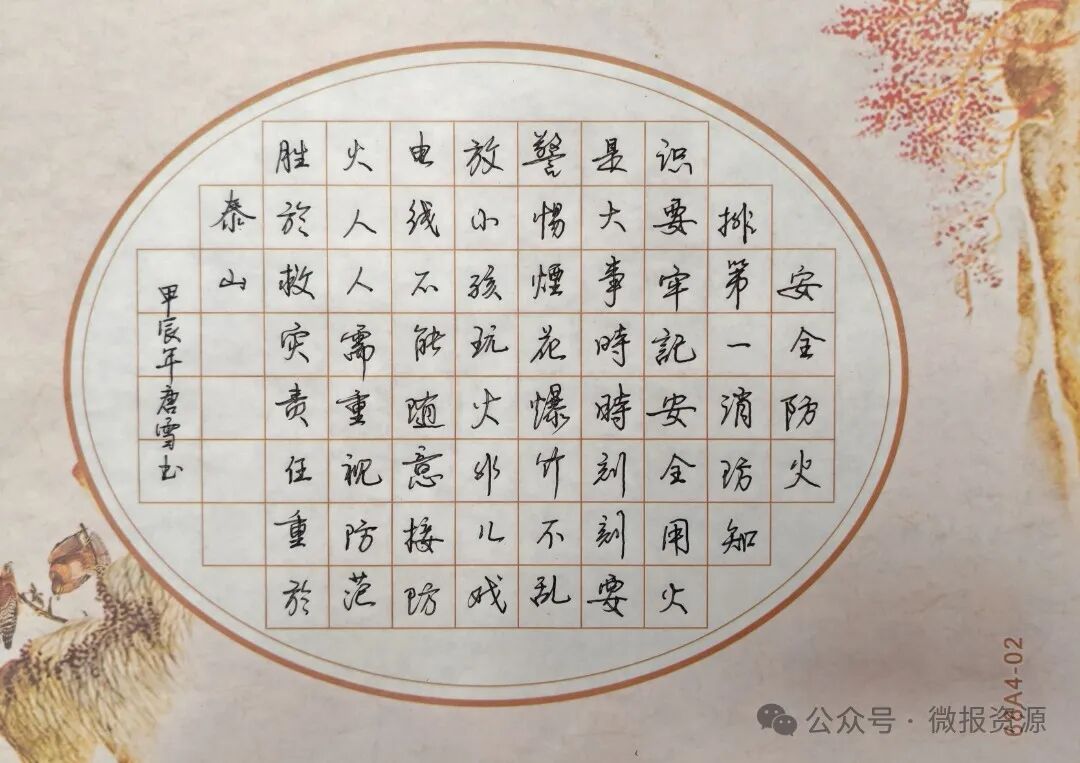 安全防火
排第一消防知
识要牢記安全用火
是大事時時刻刻要
警惕煙花爆竹不乱
放小孩玩火非儿戏
电线不能随意接防
火人人需重视防范
胜於救灾责任重於
泰山
甲辰年唐雪玉
68A4-02
公众号·微报资源